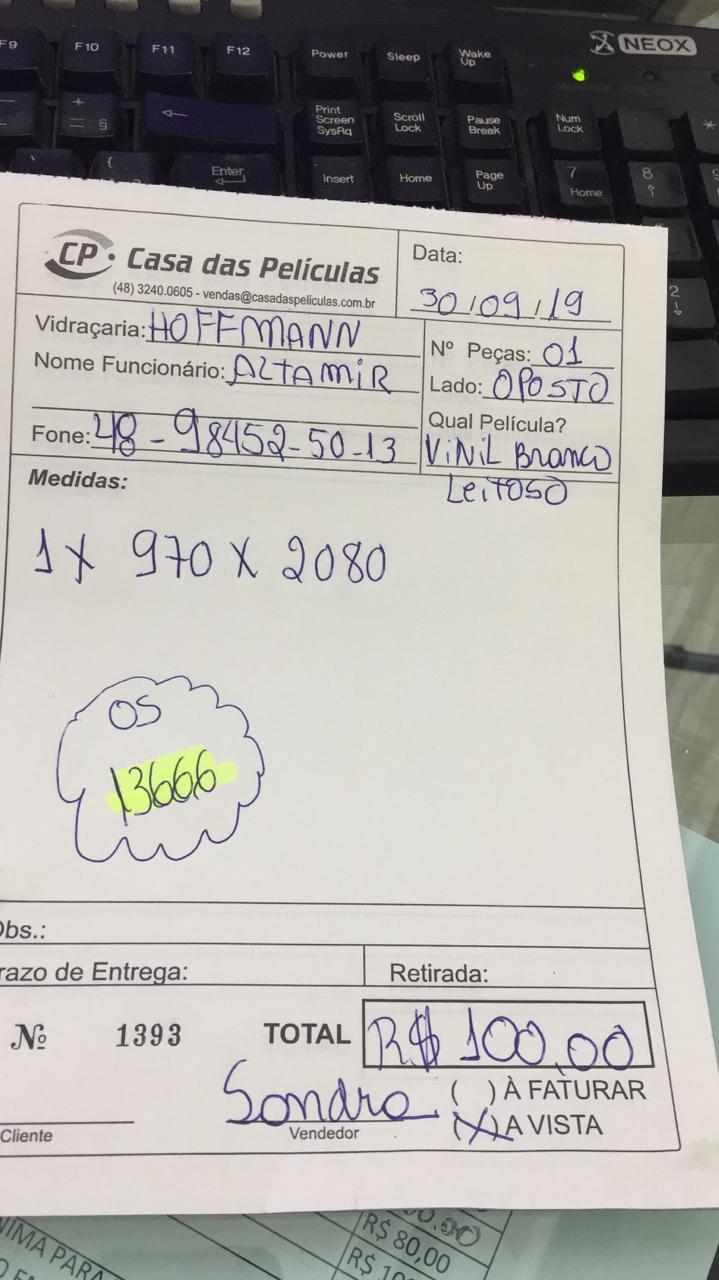 F9 F10 F11 F12 Power Sleep Wake Up NEOX
+ = § Print Screen SysRq Scroll Lock Pause Break Num Lock *
{ Enter Insert Home Page Up 7 Home 8
2
CP Casa das Películas
(48) 3240.0605 - vendas@casadaspeliculas.com.br
Data:
30/09/19
Vidraçaria: HOFFMANN
Nome Funcionário: ALTAMIR
Fone: 48-98452-50-13
Nº Peças: 01
Lado: OPOSTO
Qual Película?
ViNiL BRANCO
LEiTOSO
Medidas:
1 X 970 X 2080
OS
13666
Obs.:
razo de Entrega:
Retirada:
Nº 1393 TOTAL R$ 100,00
( ) À FATURAR
Sondra (X) A VISTA
Cliente Vendedor
00.00
NIMA PARA R$ 80,00
R$ 10